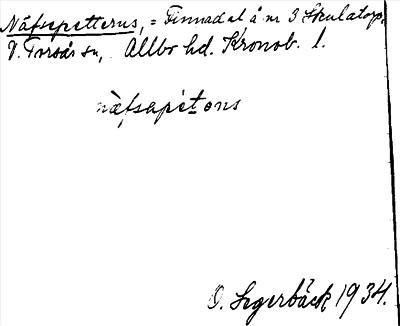 Näfsepetterus, = Finnadal å nr 3 Skulatorp,
V. Torsås sn, Allbo hd. Kronob. l.
nàfsapét ons
O. Segerbäck 1934.